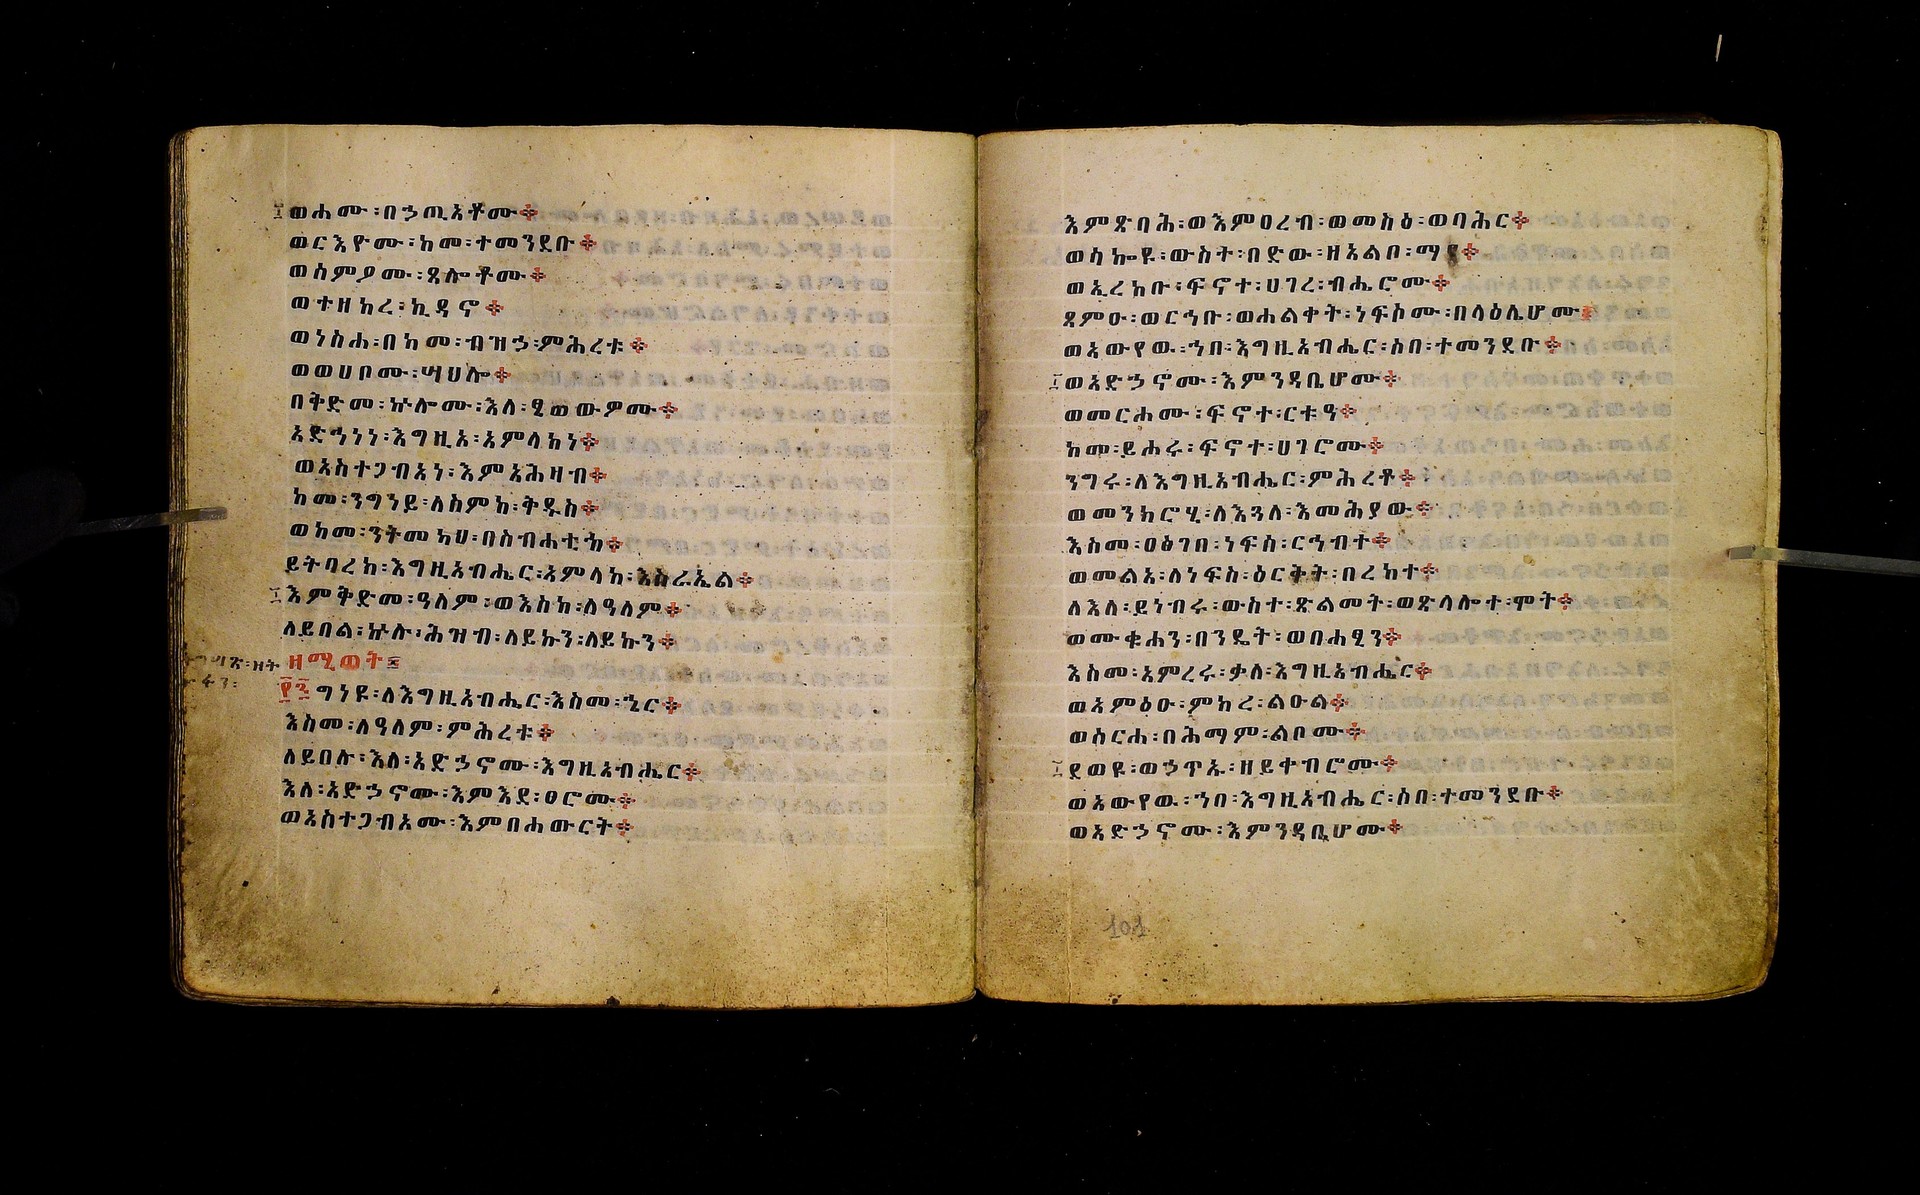 ወሐሙ ፡ በኃጢአቶሙ ፨
ወርእዮሙ ፡ ከመ ፡ ተመንደቡ ፨
ወሰምዖሙ ፡ ጸሎቶሙ ፨
ወተዘከረ ፡ ኪዳኖ ፨
ወነስሐ ፡ በከመ ፡ ብዝኃ ፡ ምሕረቱ ፨
ወወሀቦሙ ፡ ሣህሎ ፨
በቅድመ ፡ ኵሎሙ ፡ እለ ፡ ፄወውዎሙ ፨
አድኅነነ ፡ እግዚአ ፡ አምላክነ ፨
ወአስተጋብአነ ፡ እምአሕዛብ ፨
ከመ ፡ ንግነይ ፡ ለስምከ ፡ ቅዱስ ፨
ወከመ ፡ ንትመካህ ፡ በስብሐቲከ ፨
ይትባረክ ፡ እግዚአብሔር ፡ አምላከ ፡ እስራኤል ፨
እምቅድመ ፡ ዓለም ፡ ወእስከ ፡ ለዓለም ፨
ለይበል ፡ ኵሉ ፡ ሕዝብ ፡ ለይኩን ፡ ለይኩን ፨
ዘሚጠት ፨
፻፮ ግነዩ ፡ ለእግዚአብሔር ፡ እስመ ፡ ኄር ፨
እስመ ፡ ለዓለም ፡ ምሕረቱ ፨
ለይበሉ ፡ እለ ፡ አድኃኖሙ ፡ እግዚአብሔር ፨
እለ ፡ አድኃኖሙ ፡ እምእደ ፡ ፀሮሙ ፨
ወአስተጋብአሙ ፡ እምበሐውርት ፨
እምጽባሕ ፡ ወእምዐረብ ፡ ወመስዕ ፡ ወባሕር ፨
ወሳኰዩ ፡ ውስተ ፡ በድው ፡ ዘአልቦ ፡ ማየ ፨
ወኢረከቡ ፡ ፍኖተ ፡ ሀገረ ፡ ብሔሮሙ ፨
ጸምዑ ፡ ወርኅቡ ፡ ወሐልቀት ፡ ነፍስሙ ፡ በላዕሌሆሙ ፨
ወአውየዉ ፡ ኀበ ፡ እግዚአብሔር ፡ ሶበ ፡ ተመንደቡ ፨
ወአድኃኖሙ ፡ እምንዳቤሆሙ ፨
ወመርሐሙ ፡ ፍኖተ ፡ ርቱዓ ፨
ከመ ፡ ይሐሩ ፡ ፍኖተ ፡ ሀገሮሙ ፨
ንግሩ ፡ ለእግዚአብሔር ፡ ምሕረቶ ፨
ወመንክሮሂ ፡ ለእጓለ ፡ እመሕያው ፨
እስመ ፡ ዐፅገበ ፡ ነፍሰ ፡ ርኅብተ ፨
ወመልአ ፡ ለነፍስ ፡ ዕርቅት ፡ በረከተ ፨
ለእለ ፡ ይነብሩ ፡ ውስተ ፡ ጽልመት ፡ ወጽላሎተ ፡ ሞት ፨
ወሙቁሐን ፡ በንዴት ፡ ወበሐፂን ፨
እስመ ፡ አምረሩ ፡ ቃለ ፡ እግዚአብሔር ፨
ወአምዕዑ ፡ ምክረ ፡ ልዑል ፨
ወሰርሐ ፡ በሕማም ፡ ልቦሙ ፨
ደወዩ ፡ ወኃጥኡ ፡ ዘይቀብሮሙ ፨
ወአውየዉ ፡ ኀበ ፡ እግዚአብሔር ፡ ሶበ ፡ ተመንደቡ ፨
ወአድኃኖሙ ፡ እምንዳቤሆሙ ፨
101